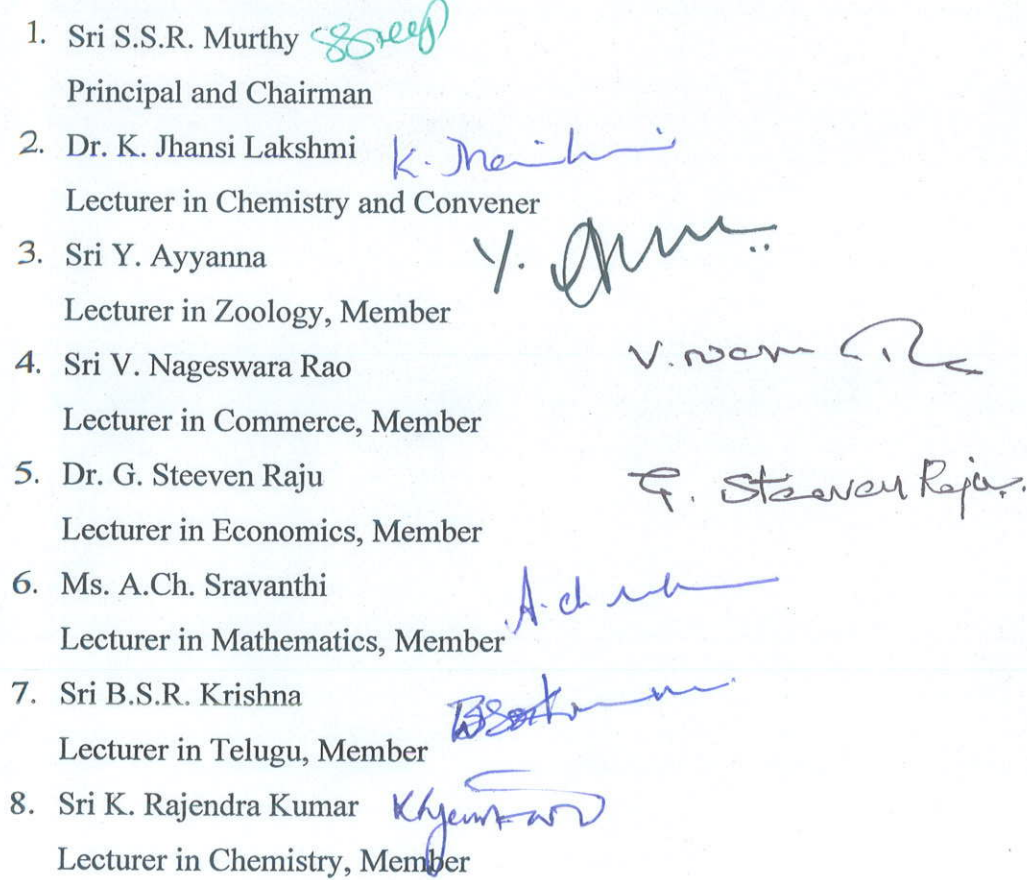 1. Sri S.S.R. Murthy
Principal and Chairman
2. Dr. K. Jhansi Lakshmi K. Jhansi
Lecturer in Chemistry and Convener
3. Sri Y. Ayyanna Y.
Lecturer in Zoology, Member
4. Sri V. Nageswara Rao V.
Lecturer in Commerce, Member
5. Dr. G. Steeven Raju G. Steeven Raju.
Lecturer in Economics, Member
6. Ms. A.Ch. Sravanthi A. ch
Lecturer in Mathematics, Member
7. Sri B.S.R. Krishna
Lecturer in Telugu, Member
8. Sri K. Rajendra Kumar
Lecturer in Chemistry, Member